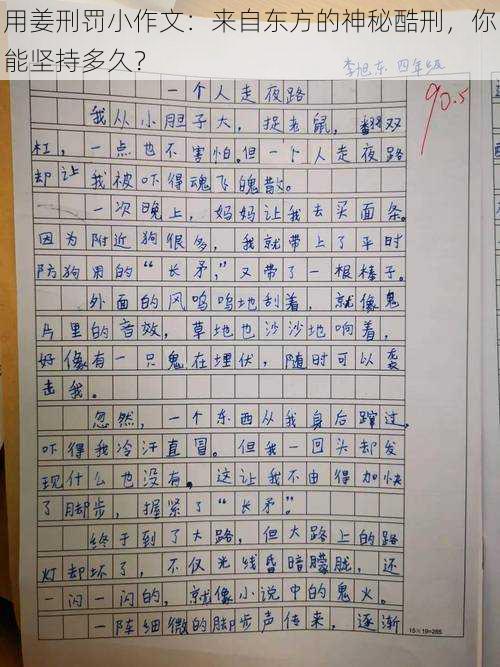 用姜刑罚小作文：来自东方的神秘酷刑，你
能坚持多久？
李旭东 四年级
90.5
一个人走夜路
我从小胆子大，捉老鼠，翻双
杠，一点也不害怕。但一个人走夜路
却让我被吓得魂飞魄散。
一次晚上，妈妈让我去买面条。
因为附近狗很多，我就带上了平时
防狗用的“长矛”，又带了一根棒子。
外面的风呜呜地刮着，就像鬼
片里的音效，草地也沙沙地响着，
好像有一只鬼在埋伏，随时可以袭
击我。
忽然，一个东西从我身后蹿过，
吓得我冷汗直冒。但我一回头却发
现什么也没有。这让我不由得加快
了脚步，握紧了“长矛”。
终于到了大路，但大路上的路
灯却坏了，不仅光线昏暗朦胧，还
一闪一闪的，就像小说中的鬼火。
一阵细微的脚步声传来，逐渐
15×19=285